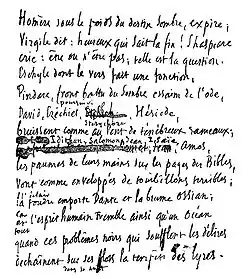 Homère sous le poids du destin sombre, expire;
Virgile dit: heureux qui sait la fin! Shaspeare
crie: être ou n'être pas; telle est la question.
Eschyle dont le vers fait une fonction,
Pindare, front battu du sombre essaim de l'ode,
poursuivi
David, Ezéchiel, Hésiode,
Stésichore
bruissent comme au vent de ténébreux rameaux;
Idithun, Salomon, Isaïe, Amos,
les paumes de leurs mains sur les pages des Bibles,
Vont comme enveloppés de tourbillons terribles;
l'éclair
la foudre emporte Dante et la brume Ossian;
et l'esprit humain tremble ainsi qu'un océan
tout
quand ces problèmes noirs qui soufflent les délires
déchaînent sur ses flots la tempête des lyres.